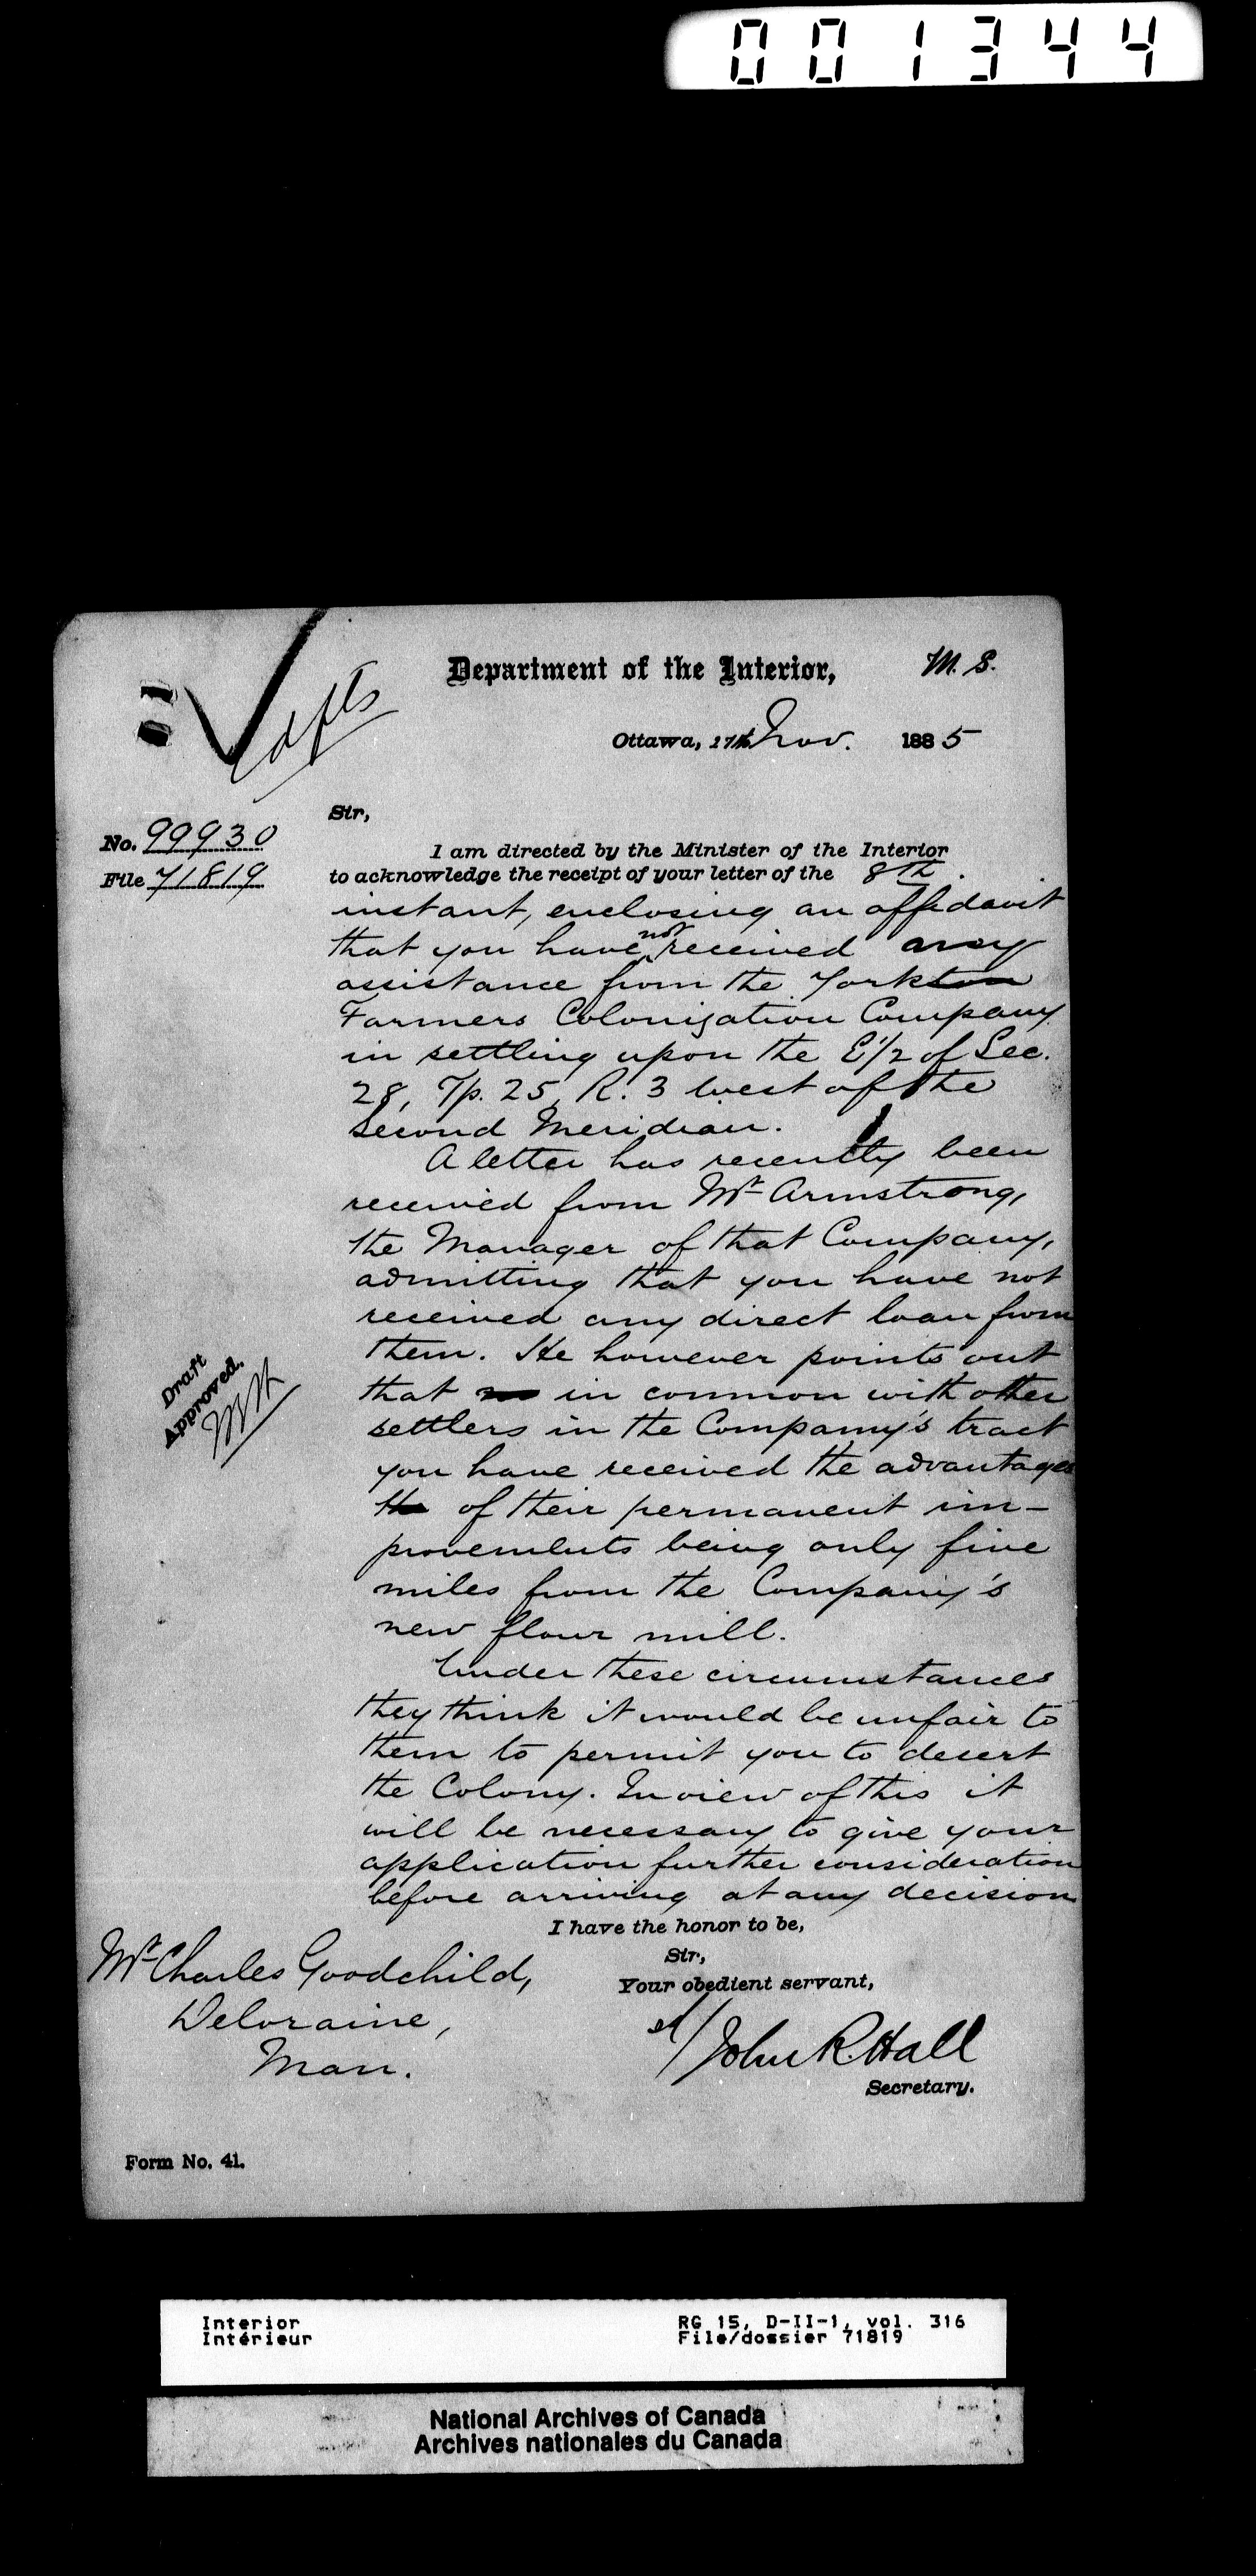 001344
Department of the Interior,
M. S.
Ottawa, 17th Nov. 1885
No. 99930
File 71819
Sir,
I am directed by the Minister of the Interior
to acknowledge the receipt of your letter of the 8th.
instant, enclosing an affidavit
that you have not received any
assistance from the York
Farmers Colonization Company
in settling upon the E 1/2 of Sec.
28, Tp. 25, R. 3 west of the
Second Meridian.
A letter has recently been
received from Mr Armstrong,
the Manager of that Company,
admitting that you have not
received any direct loan from
them. He however points out
that in common with other
settlers in the Company's tract
you have received the advantages
of their permanent im-
provements being only five
miles from the Company's
new flour mill.
Under these circumstances
they think it would be unfair to
them to permit you to desert
the Colony. In view of this it
will be necessary to give your
application further consideration
before arriving at any decision
I have the honor to be,
Sir,
Your obedient servant,
John R. Hall
Secretary.
Draft
Approved.
Mr Charles Goodchild,
Deloraine,
Man.
Form No. 41.
Interior
Intérieur
RG 15, D-II-1, vol. 316
File/dossier 71819
National Archives of Canada
Archives nationales du Canada